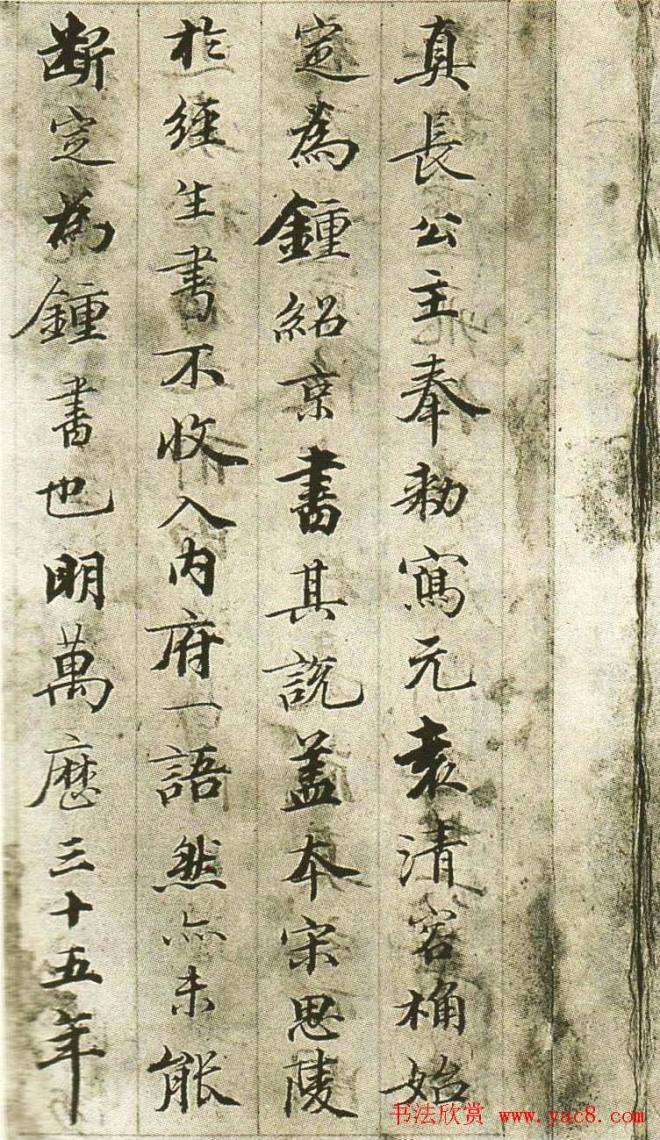 真長公主奉勅寫元袁清容桷始
定為鍾紹京書其說蓋本宋思陵
於經生書不收入內府一語然亦未能
斷定為鍾書也明萬曆三十五年
书法欣赏 www.yac8.com